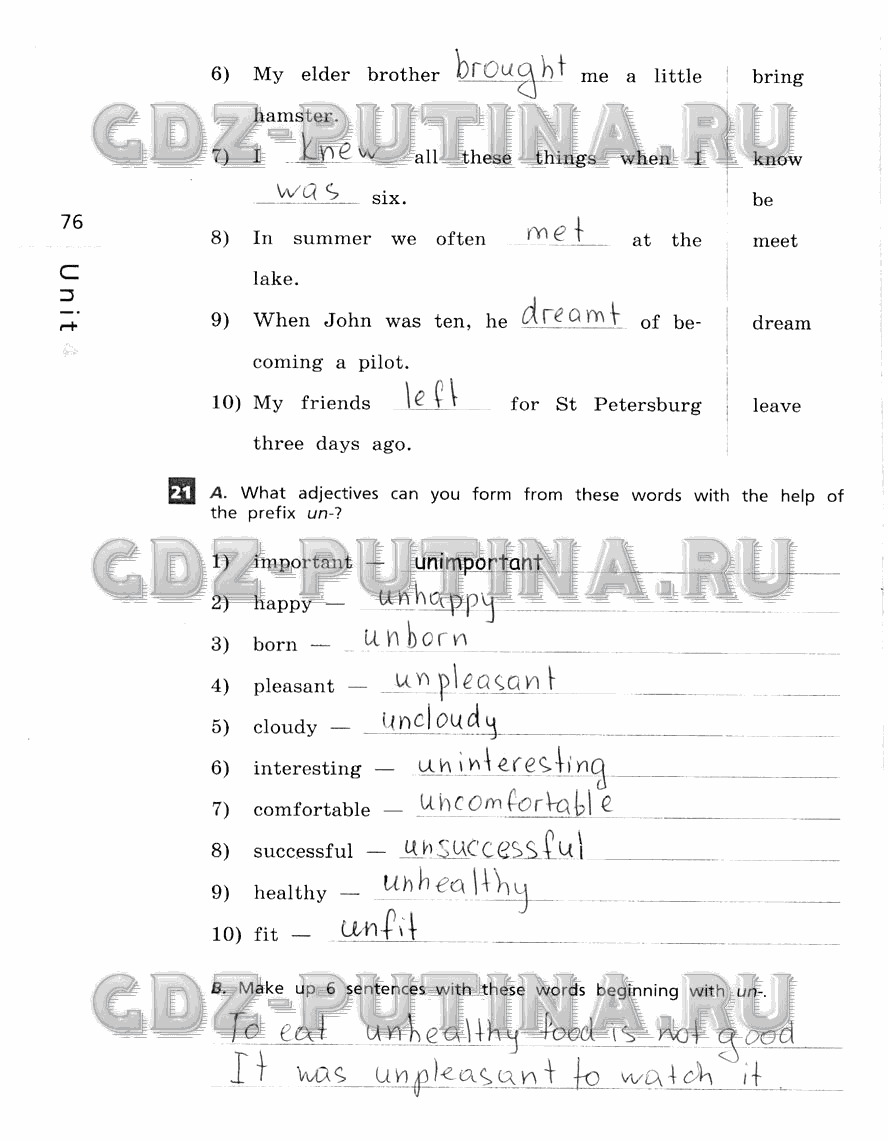 6) My elder brother brought me a little bring
hamster.
GDZ-PUTINA.RU
7) I knew all these things when I know
was six. be
76
8) In summer we often met at the meet
lake.
Unit 4
9) When John was ten, he dreamt of be- dream
coming a pilot.
10) My friends left for St Petersburg leave
three days ago.
21 A. What adjectives can you form from these words with the help of
the prefix un-?
GDZ-PUTINA.RU
1) important — unimportant
2) happy — unhappy
3) born — unborn
4) pleasant — unpleasant
5) cloudy — uncloudy
6) interesting — uninteresting
7) comfortable — uncomfortable
8) successful — unsuccessful
9) healthy — unhealthy
10) fit — unfit
B. Make up 6 sentences with these words beginning with un-.
GDZ-PUTINA.RU
To eat unhealthy food is not good
It was unpleasant to watch it.